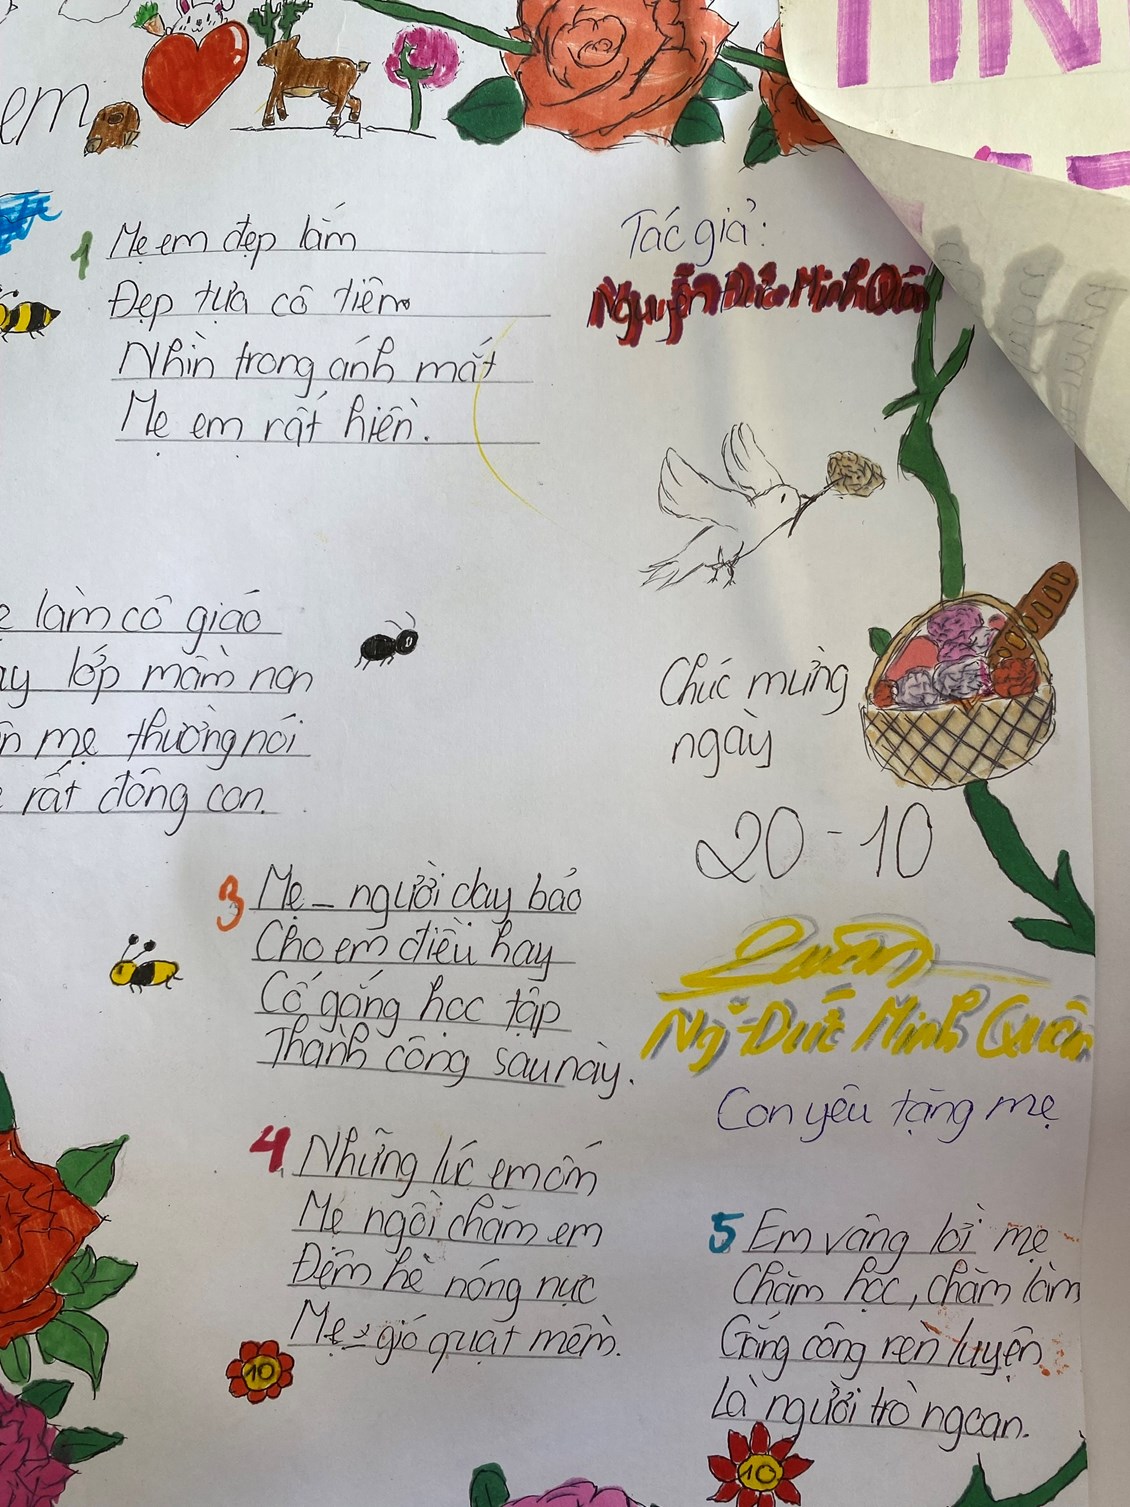 em
1 Mẹ em đẹp lắm
Đẹp tựa cô tiên
Nhìn trong ánh mắt
Mẹ em rất hiền.
Tác giả:
Nguyễn Đức Minh Quân
làm cô giáo
lớp mầm non
mẹ thường nói
rất đông con.
Chúc mừng
ngày
20 - 10
3 Mẹ - người dạy bảo
Cho em điều hay
Cố gắng học tập
Thành công sau này.
Quân
Ng̃ Đức Minh Quân
Con yêu tặng mẹ
4 Những lúc em ốm
Mẹ ngồi chăm em
Đêm hè nóng nực
Mẹ - gió quạt mềm.
5 Em vâng lời mẹ
Chăm học, chăm làm
Gắng công rèn luyện
Là người trò ngoan.
10
10